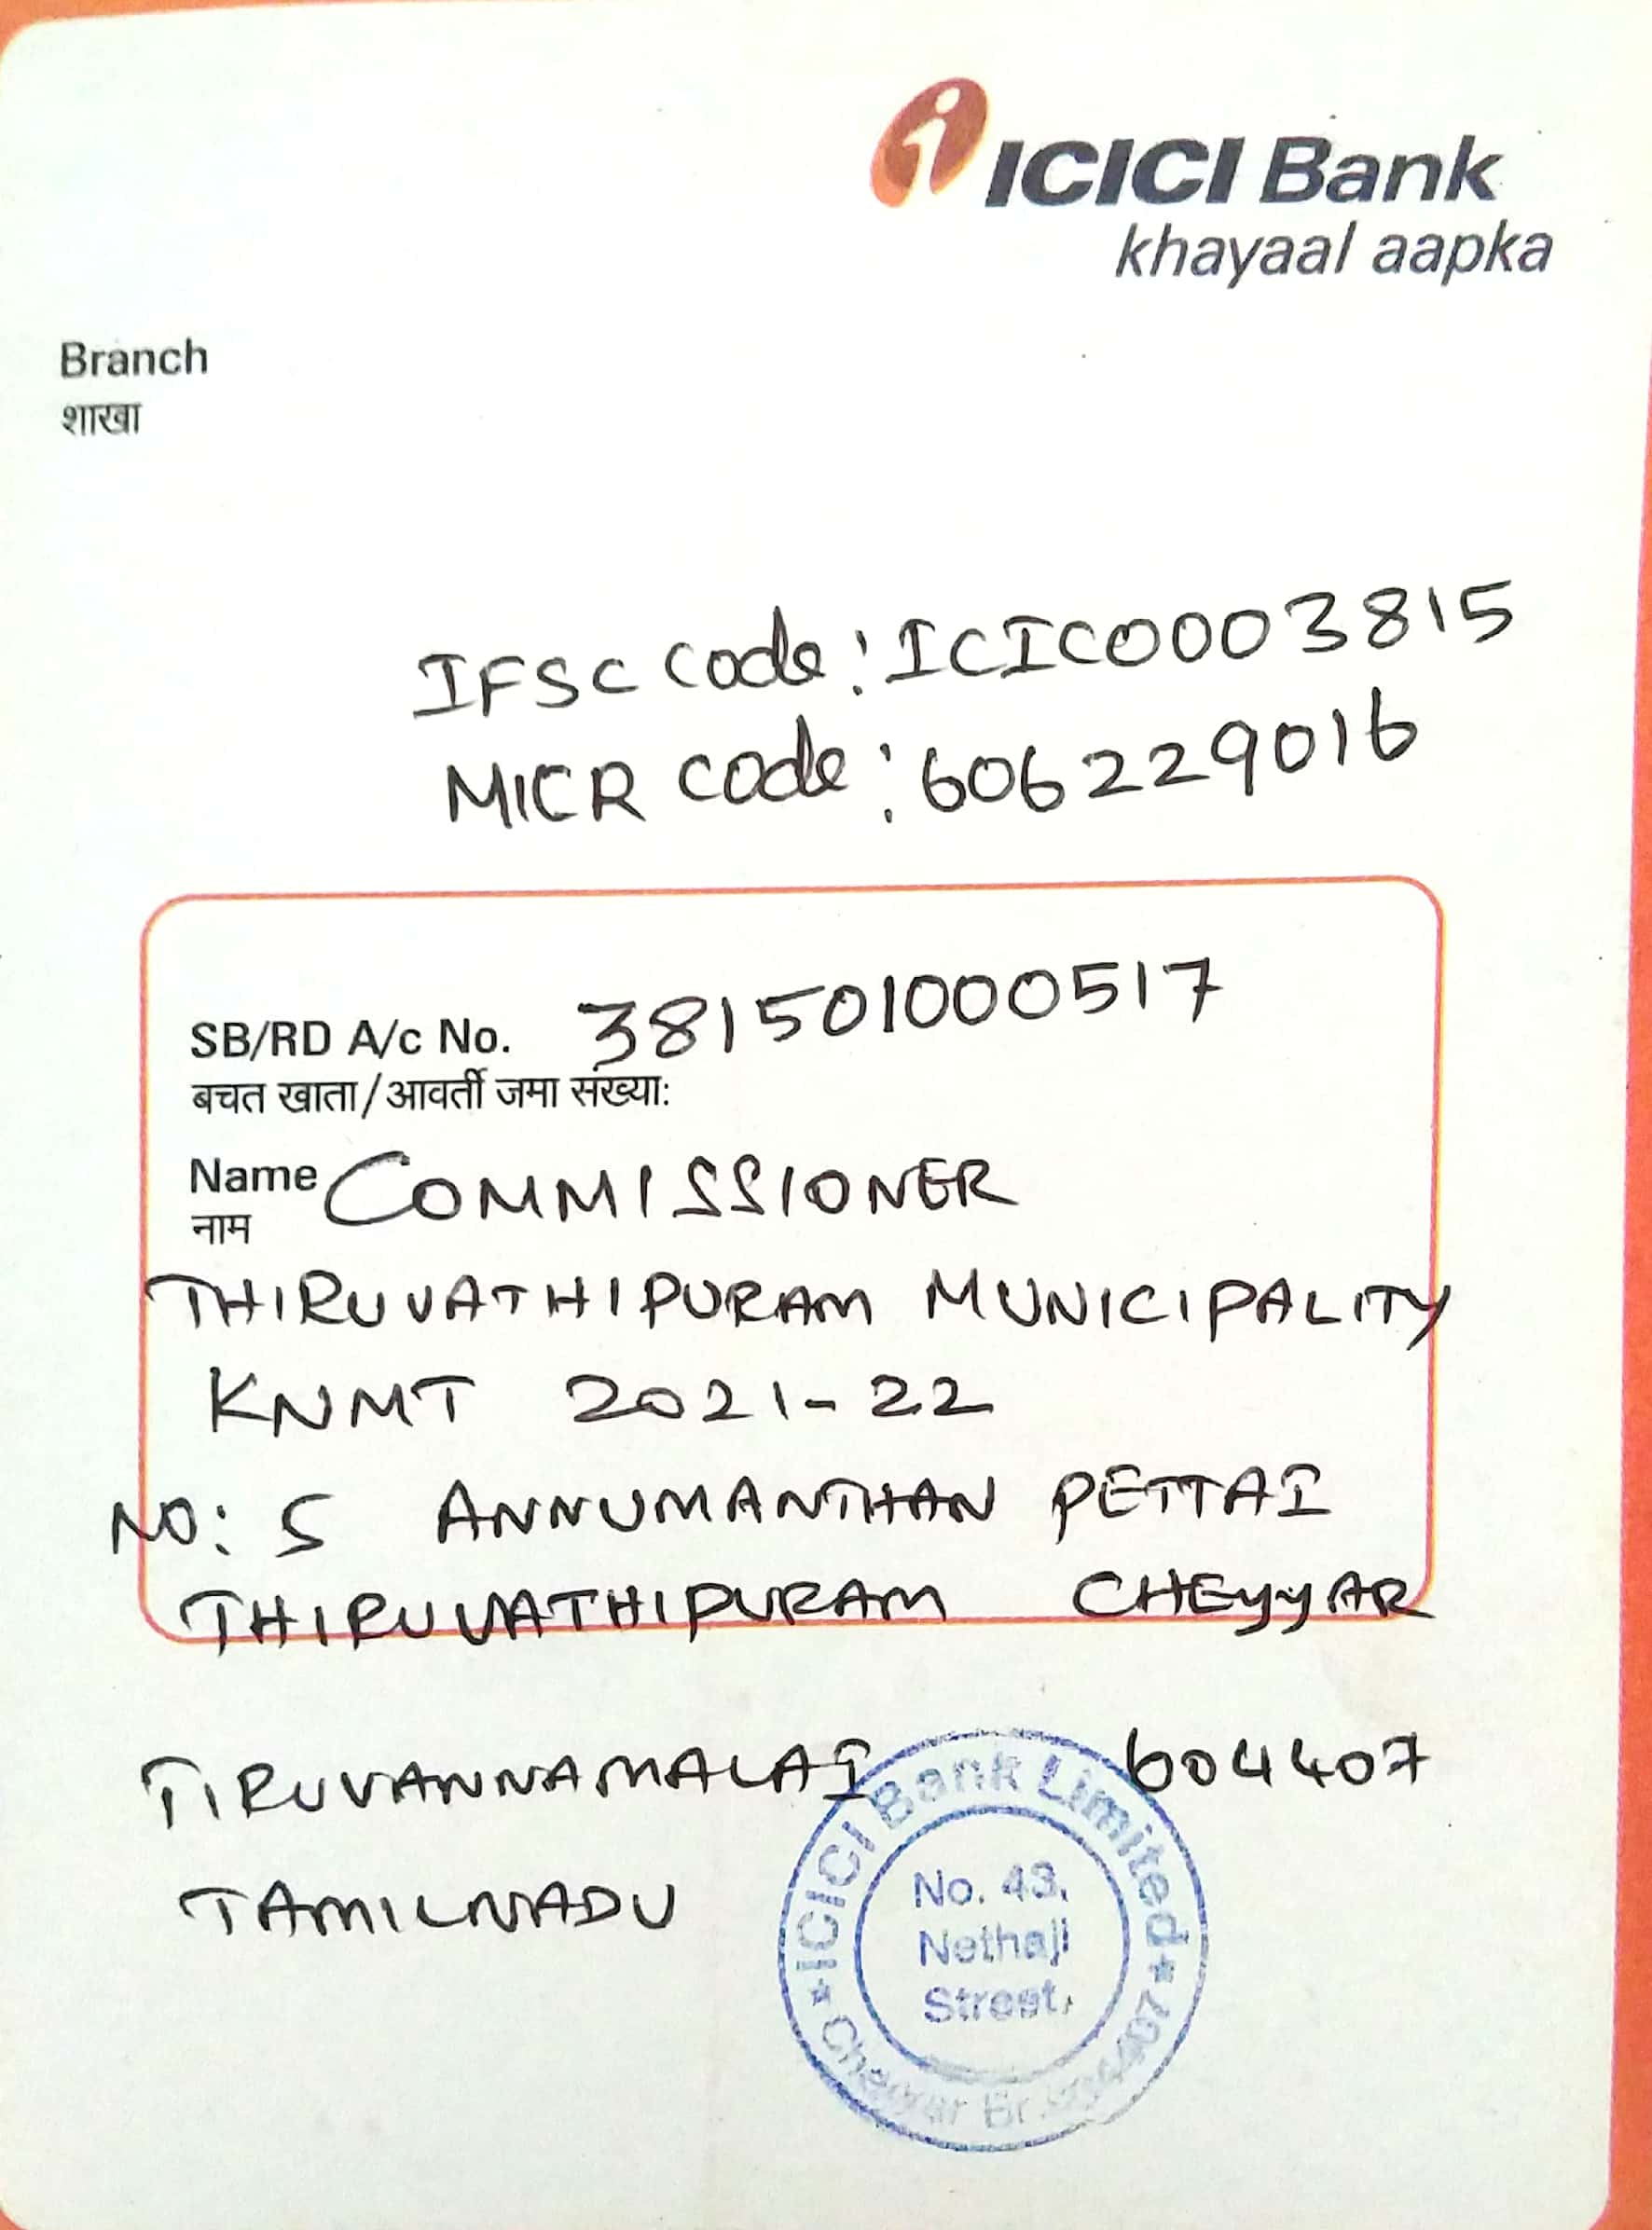 ICICI Bank
khayaal aapka
Branch
शाखा
IFSC code: ICIC0003815
MICR code: 606229016
SB/RD A/c No. 381501000517
बचत खाता/आवर्ती जमा संख्या:
Name COMMISSIONER
नाम
THIRUVATHIPURAM MUNICIPALITY
KNMT 2021-22
NO: 5 ANNUMANTHAN PETTAI
THIRUVATHIPURAM CHEYYAR
TIRUVANNAMALAI 604407
TAMILNADU
ICICI Bank Limited
No. 43,
Nethaji
Street,
Cheyyar Br.